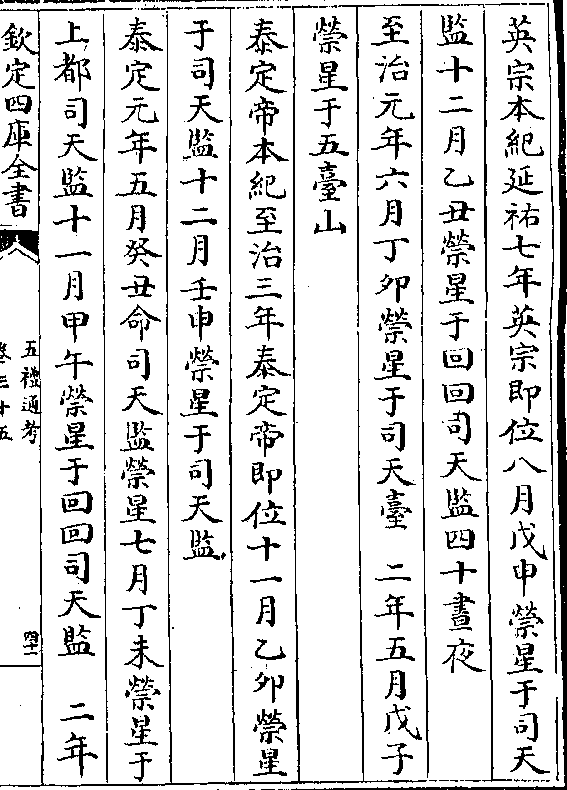 英宗本紀延祐七年英宗即位八月戊申禜星于司天
監十二月乙丑禜星于回回司天監四十晝夜
至治元年六月丁卯禜星于司天臺　二年五月戊子
禜星于五臺山
泰定帝本紀至治三年泰定帝即位十一月乙卯禜星
于司天監十二月壬申禜星于司天監
泰定元年五月癸丑命司天監禜星七月丁未禜星于
上都司天監十一月甲午禜星于回回司天監　二年
欽定四庫全書
五禮通考
卷三十五
四十二